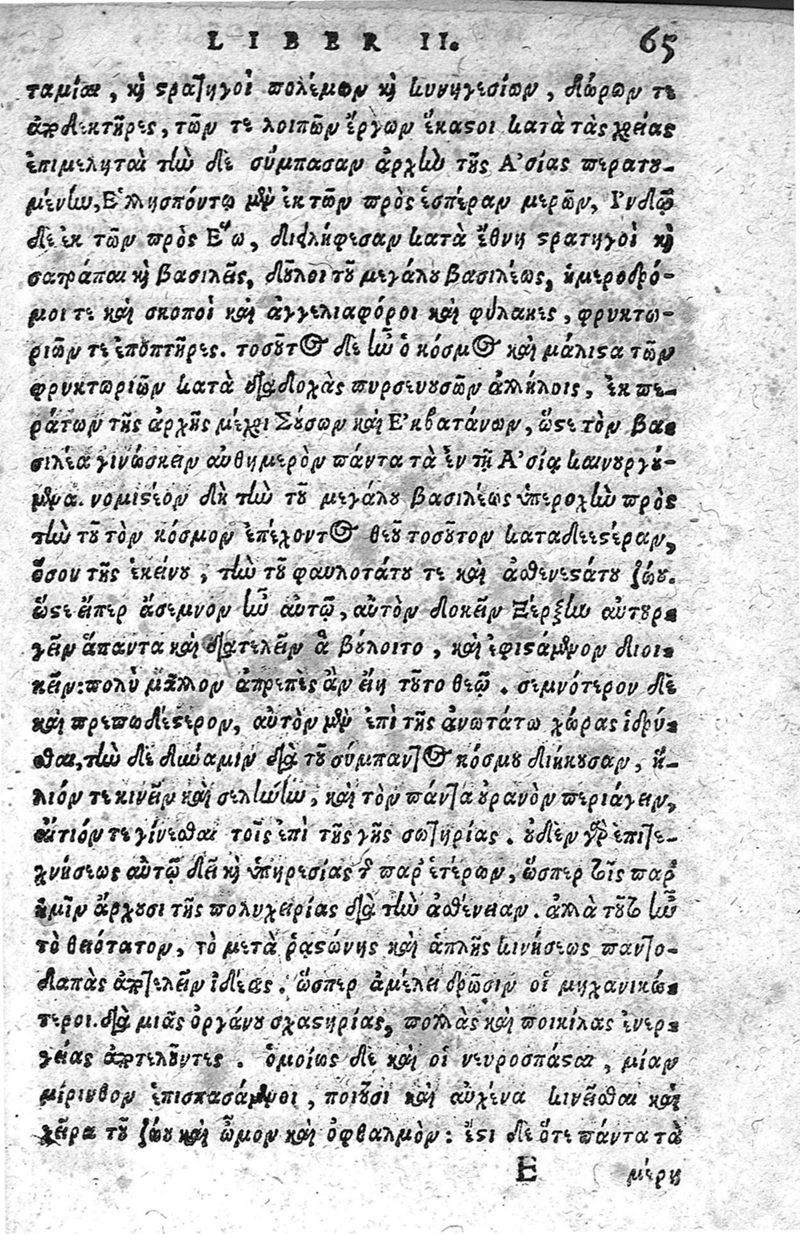 LIBER II. 65
ταμίαι, καὶ στρατηγοὶ πολέμων καὶ κυνηγεσίων, δώρων τε
ἀποδεκτῆρες, τῶν τε λοιπῶν ἔργων ἕκαστοι κατὰ τὰς χρείας
ἐπιμεληταὶ τὴν δὲ σύμπασαν ἀρχὴν τῆς Ἀσίας περατου-
μένην, Ἑλλησπόντῳ μὲν ἐκ τῶν πρὸς ἑσπέραν μερῶν, Ἰνδῷ
δὲ ἐκ τῶν πρὸς Ἕω, διειλήφεσαν κατὰ ἔθνη στρατηγοὶ καὶ
σατράπαι καὶ βασιλεῖς, δοῦλοι τοῦ μεγάλου βασιλέως, ἡμεροδρό-
μοι τε καὶ σκοποὶ καὶ ἀγγελιαφόροι καὶ φύλακες, φρυκτω-
ριῶν τε ἐποπτῆρες. τοσοῦτος δὲ ἦν ὁ κόσμος καὶ μάλιστα τῶν
φρυκτωριῶν κατὰ διαδοχὰς πυρσευουσῶν ἀλλήλοις, ἐκ πε-
ράτων τῆς ἀρχῆς μέχρι Σούσων καὶ Ἐκβατάνων, ὥστε τὸν βα-
σιλέα γινώσκειν αὐθημερὸν πάντα τὰ ἐν τῇ Ἀσίᾳ καινουργού-
μενα. νομιστέον δὴ τὴν τοῦ μεγάλου βασιλέως ὑπεροχὴν πρὸς
τὴν τοῦ τὸν κόσμον ἐπέχοντος θεοῦ τοσοῦτον καταδεεστέραν,
ὅσον τῆς ἐκείνου, τὴν τοῦ φαυλοτάτου τε καὶ ἀσθενεστάτου ζώου.
ὥστε εἴπερ ἄσεμνον ἦν αὐτῷ, αὐτὸν δοκεῖν Ξέρξην αὐτουρ-
γεῖν ἅπαντα καὶ διατελεῖν ἃ βούλοιτο, καὶ ἐφιστάμενον διοι-
κεῖν: πολὺ μᾶλλον ἀπρεπὲς ἂν εἴη τοῦτο θεῷ. σεμνότερον δὲ
καὶ πρεπωδέστερον, αὐτὸν μὲν ἐπὶ τῆς ἀνωτάτω χώρας ἱδρύ-
σθαι, τὴν δὲ δύναμιν διὰ τοῦ σύμπαντος κόσμου διήκουσαν, ἥ-
λιόν τε κινεῖν καὶ σελήνην, καὶ τὸν πάντα οὐρανὸν περιάγειν,
αἴτιόν τε γίνεσθαι τοῖς ἐπὶ τῆς γῆς σωτηρίας. οὐδὲν γὰρ ἐπιτε-
χνήσεως αὐτῷ δεῖ καὶ ὑπηρεσίας τῆς παρ' ἑτέρων, ὥσπερ τοῖς παρ'
ἡμῖν ἄρχουσι τῆς πολυχειρίας διὰ τὴν ἀσθένειαν. ἀλλὰ τοῦτο ἦν
τὸ θειότατον, τὸ μετὰ ῥᾳστώνης καὶ ἁπλῆς κινήσεως παντο-
δαπὰς ἀποτελεῖν ἰδέας. ὥσπερ ἀμέλει δρῶσιν οἱ μηχανικώ-
τεροι. διὰ μιᾶς ὀργάνου σχαστηρίας, πολλὰς καὶ ποικίλας ἐνερ-
γείας ἀποτελοῦντες. ὁμοίως δὲ καὶ οἱ νευροσπάσται, μίαν
μίρινθον ἐπισπασάμενοι, ποιοῦσι καὶ αὐχένα κινεῖσθαι καὶ
χεῖρα τοῦ ζώου καὶ ὦμον καὶ ὀφθαλμὸν: ἔστι δὲ ὅτε πάντα τὰ
E μέρη